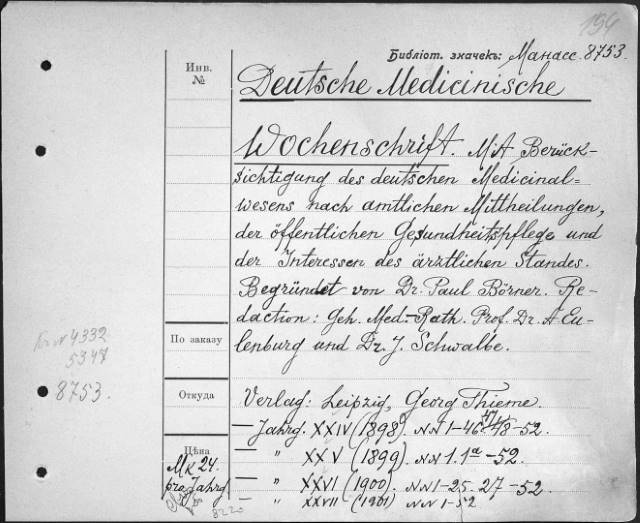 194
Библіот. значекъ: Манасс. 8753.
Инв.
№
Deutsche Medicinische
Wochenschrift. Mit Berück-
sichtigung des deutschen Medicinal=
wesens nach amtlichen Mittheilungen,
der öffentlichen Gesundheitspflege und
der Interessen des ärztlichen Standes.
Begründet von Dr. Paul Börner. Re-
daction: Geh. Med.-Rath. Prof. Dr. A Eu-
lenburg und Dr. J. Schwalbe.
По заказу
4332
5347
8753.
Откуда
Verlag: Leipzig, Georg Thieme.
— Jahrg. XXIV (1898) NN 1-46 47/48-52.
— " XXV (1899) NN 1.1a-52.
— " XXVI (1900) NN 1-25. 27-52
— " XXVII (1901) NN 1-52
Цѣна
Mk 24.
pro Jahrg
8220